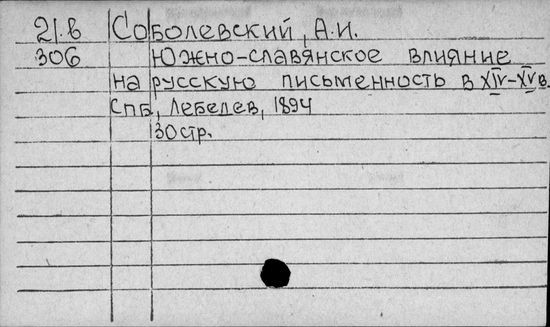 21.в Соболевский, А.И.
306 Южно-славянское влияние
на русскую письменность в XIV-XV в.
СПБ, Лебедев, 1894
30 стр.